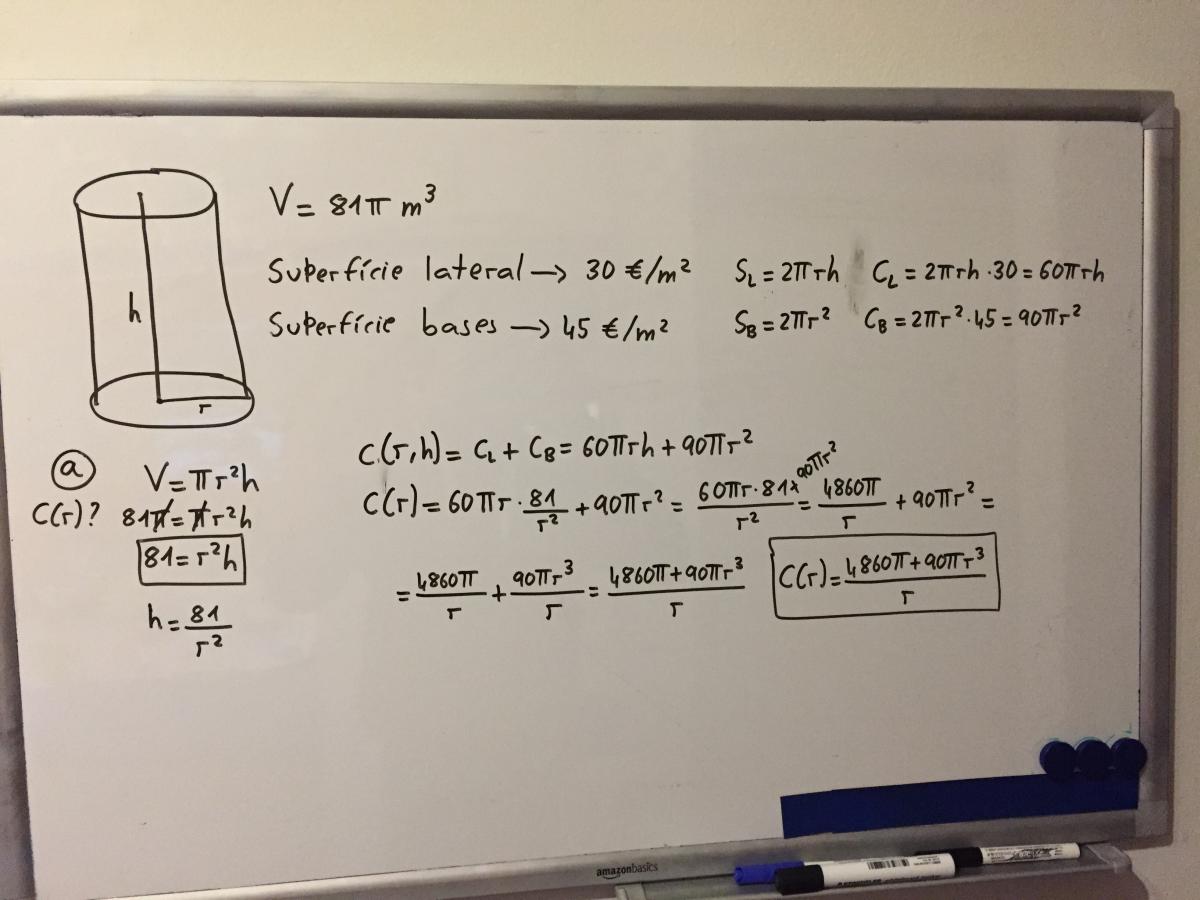 V = 81π m³
Superfície lateral → 30 €/m² S_L = 2πrh C_L = 2πrh · 30 = 60πrh
Superfície bases → 45 €/m² S_B = 2πr² C_B = 2πr² · 45 = 90πr²
h
r
ⓐ V = πr²h
C(r)? 81π = πr²h
81 = r²h
h = 81/r²
C(r,h) = C_L + C_B = 60πrh + 90πr²
C(r) = 60πr · 81/r² + 90πr² = 60πr·81/r² + 90πr² = 4860π/r + 90πr² =
= 4860π/r + 90πr³/r = (4860π + 90πr³)/r C(r) = (4860π + 90πr³)/r
amazonbasics